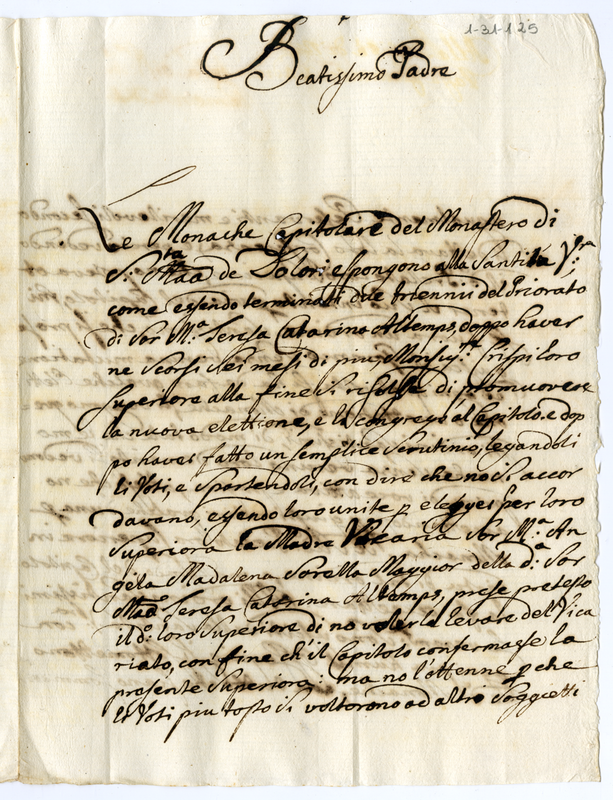 1-31-125
Beatissimo Padre
Le Monache Capitolare del Monastero di
S.ta Maa de Dolori espongono alla Santità V.ra
come essendo terminati due triennii del Priorato
di Sor M.a Teresa Catarina Altemps, doppo haver
ne scorsi sei mesi di piu, Monsig.r Crispi loro
Superiore alla fine si risolse di promuovere
la nuova elettione, e la congregò al Capitolo. e dop
po haver fatto un semplice scrutinio, legandoli
li Voti, e spartendoli, con dire che no si accor
davano, essendo loro unite p elegger per loro
Superiora la Madre Vicaria Sor M.a An
gela Madalena Sorella Maggior della d.a Sor
Maa Teresa Catarina Altemps, prese pretesto
il d.o loro Superiore di no volerla levare del Vica
riato, con fine ch il Capitolo confermasse la
presente Superiora: ma no l'ottenne p che
li Voti piu tosto si voltorono ad altro Soggetti